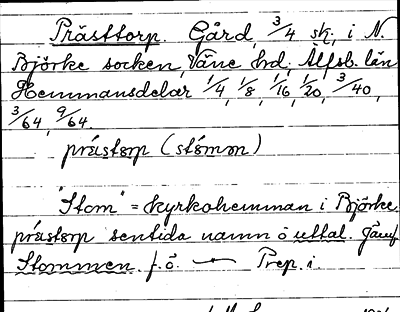 Prästtorp. Gård 3/4 sk. i N.
Björke socken, Väne hd. Älfsb. län
Hemmansdelar 1/4, 1/8, 1/16, 1/20, 3/40,
3/64, 9/64.
prástorp (stómǝn)
"Stom" = kyrkohemman i Björke.
prästorp sentida namn o uttal. Jämf
Stommen f. ö. — Prep. i.